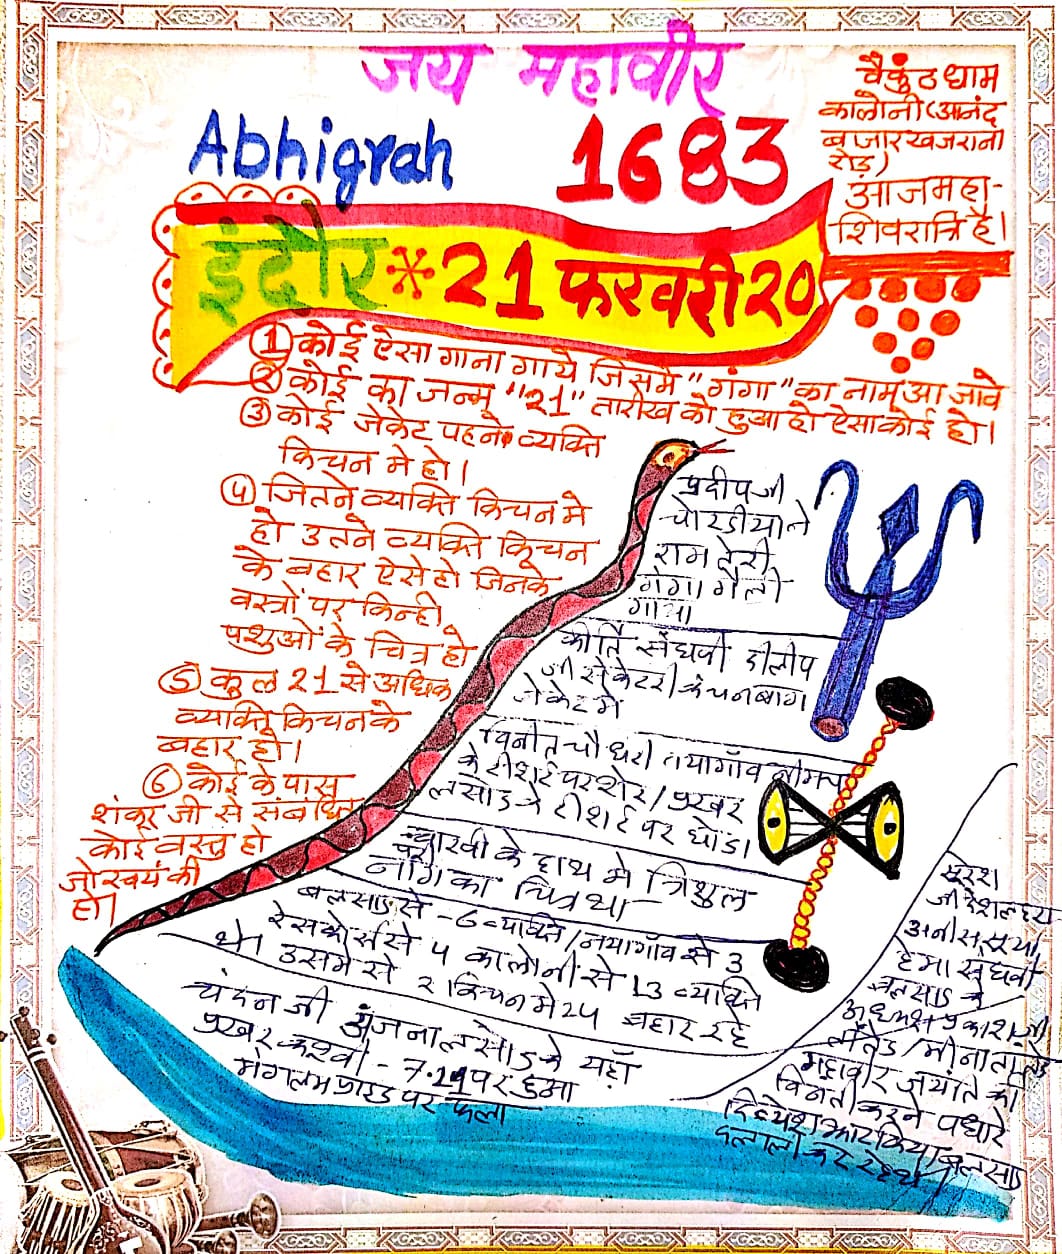 जय महावीर
Abhigrah 1683
वैकुंठ धाम
कालौनी (आनंद
बजार खजराना
रोड़)
आज महा-
शिवरात्रि है।
इंदौर * 21 फरवरी 20
① कोई ऐसा गाना गाये जिसमे "गंगा" का नाम आ जावे
② कोई का जन्म "21" तारीख को हुआ हो ऐसा कोई हो।
③ कोई जेकेट पहने व्यक्ति
किचन मे हो।
④ जितने व्यक्ति किचन मे
हो उतने व्यक्ति किचन
के बहार ऐसे हो जिनके
वस्त्रों पर किन्ही
पशुओं के चित्र हो
⑤ कूल 21 से अधिक
व्यक्ति किचन के
बहार हो।
⑥ कोई के पास
शंकर जी से संबंधित
कोई वस्तु हो
जो स्वयं की
हो।
प्रदीप जी
चोरडीया ने
राम तेरी
गंगा मैली
गाया
कीर्ति संघवी दीलीप
जी सेकेटरी कंचनबाग
जेकेट मे
विनीत चौधरी नयागाँव
के टीशर्ट पर शेर / प्रखर
लसोड़ के टीशर्ट पर घोडा
के हाथ मे त्रिशुल
नाग का चित्र था
से - 6 व्यक्ति / नयागाँव से 3
रेसकोर्स से 4 कालोनी से 13 व्यक्ति
थे। उसमे से 2 किचन मे 24 बहार रहे
चंदन जी अंजना लसोड के यहाँ
प्रखर - 7.29 पर हुआ
पर फला
सुरेश
जी
हेमा संघवी
के
अध्यक्ष प्रकाश जी
महावीर जयंति की
विनती करने पधारे